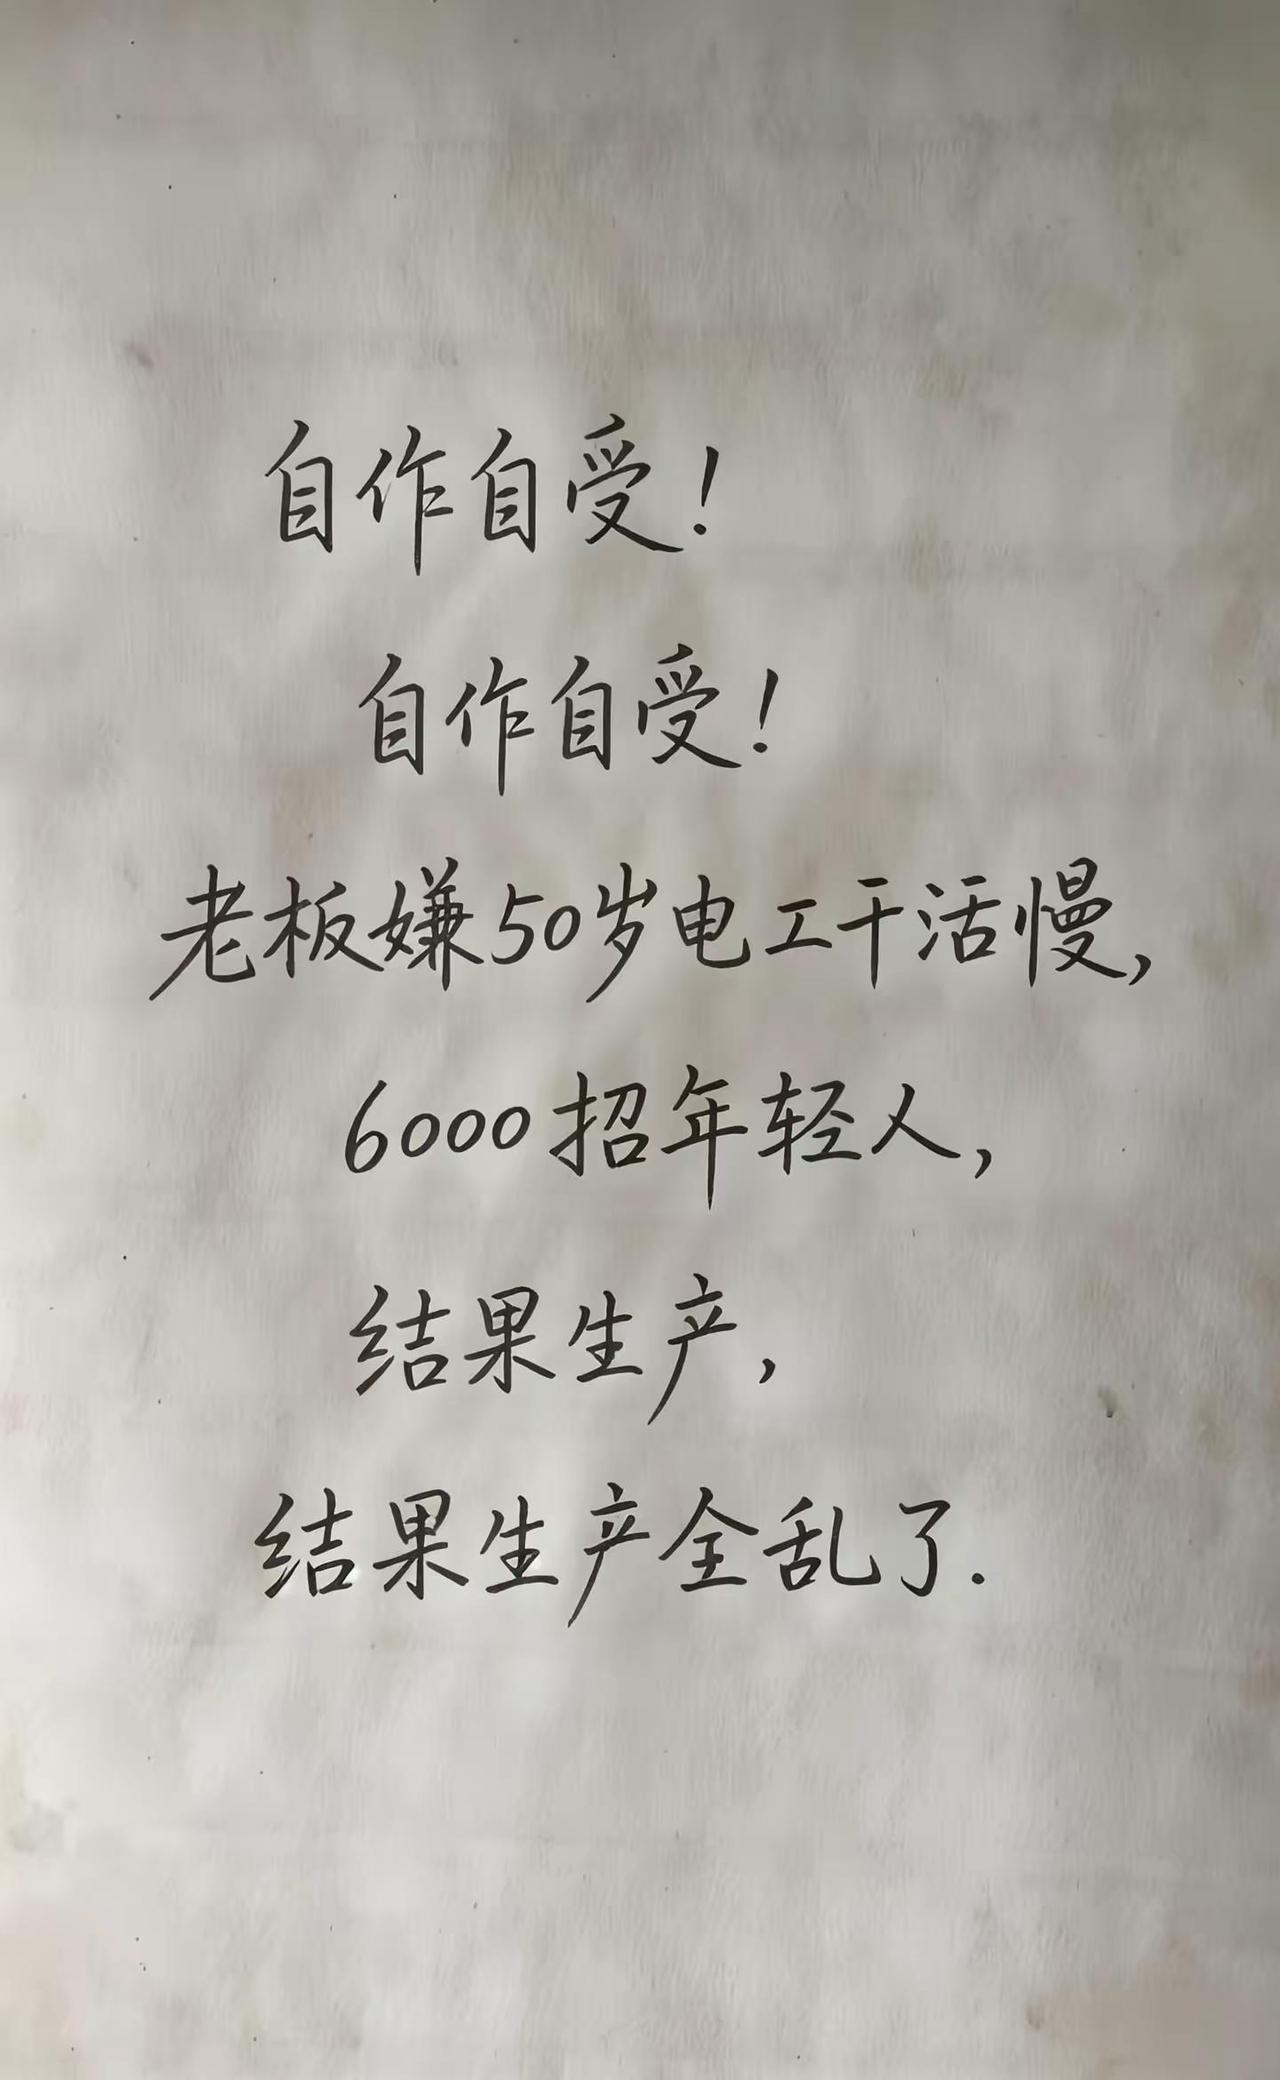 自作自受!
自作自受!
老板嫌50岁电工干活慢,
6000招年轻人,
结果生产,
结果生产全乱了.